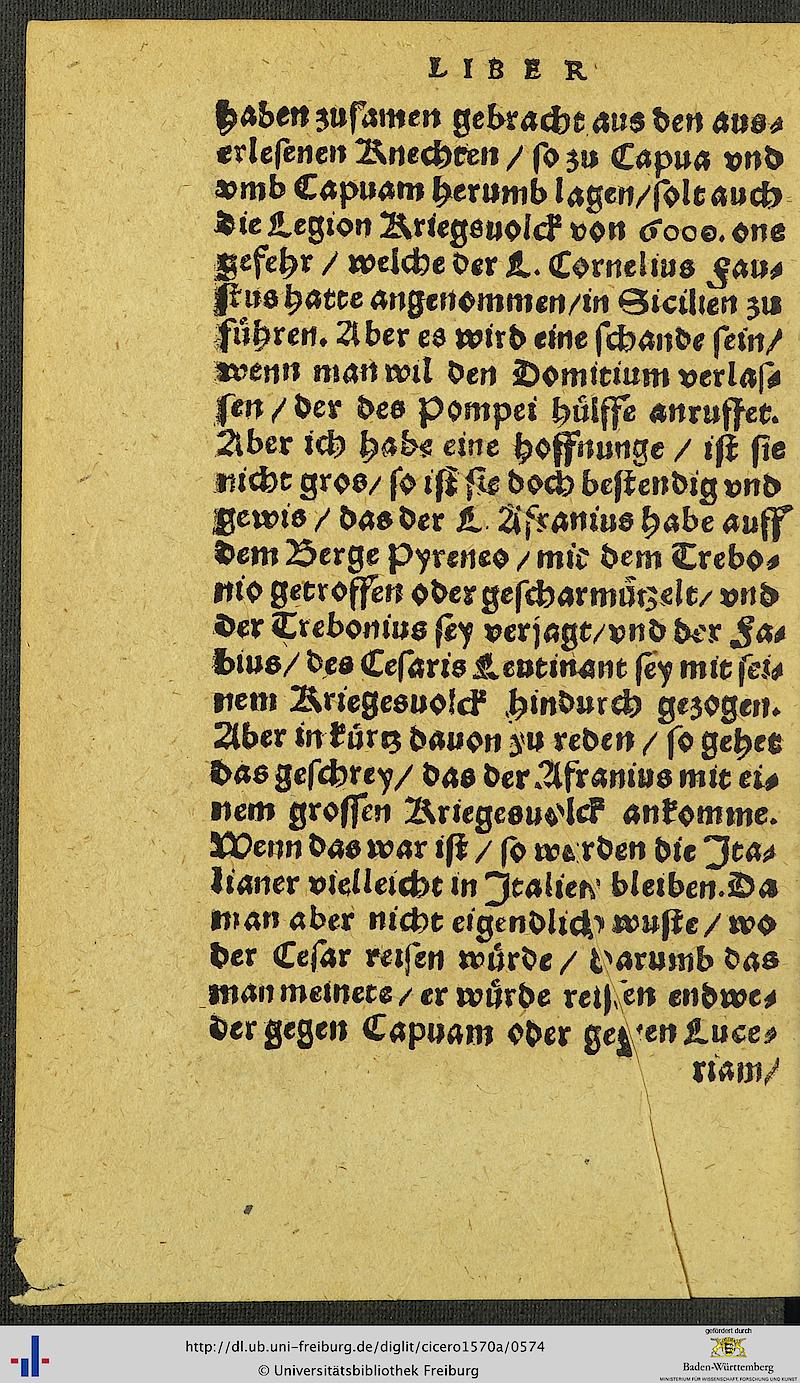 LIBER
haben zusamen gebracht aus den aus⸗
erlesenen Knechten / so zu Capua vnd
vmb Capuam herumb lagen/solt auch
die Legion Kriegsuolck von 6000. one
gefehr / welche der L. Cornelius Fau⸗
stus hatte angenommen/in Sicilien zu
führen. Aber es wird eine schande sein/
wenn man wil den Domitium verlas⸗
sen / der des Pompei hülffe anruffet.
Aber ich habe eine hoffnunge / ist sie
nicht gros/ so ist sie doch bestendig vnd
gewis / das der L. Afranius habe auff
dem Berge Pyreneo / mit dem Trebo⸗
nio getroffen oder gescharmützelt/ vnd
der Trebonius sey verjagt/vnd der Fa⸗
bius/ des Cesaris Leutinant sey mit sei⸗
nem Kriegesuolck hindurch gezogen.
Aber in kürtz dauon zu reden / so gehet
das geschrey/ das der Afranius mit ei⸗
nem grossen Kriegesuolck ankomme.
Wenn das war ist / so werden die Ita⸗
lianer vielleicht in Italien bleiben. Da
man aber nicht eigendlich wuste / wo
der Cesar reisen würde / darumb das
man meinete / er würde reissen endwe⸗
der gegen Capuam oder gegen Luce⸗
riam/
http://dl.ub.uni-freiburg.de/diglit/cicero1570a/0574
© Universitätsbibliothek Freiburg
gefördert durch
Baden-Württemberg
MINISTERIUM FÜR WISSENSCHAFT, FORSCHUNG UND KUNST